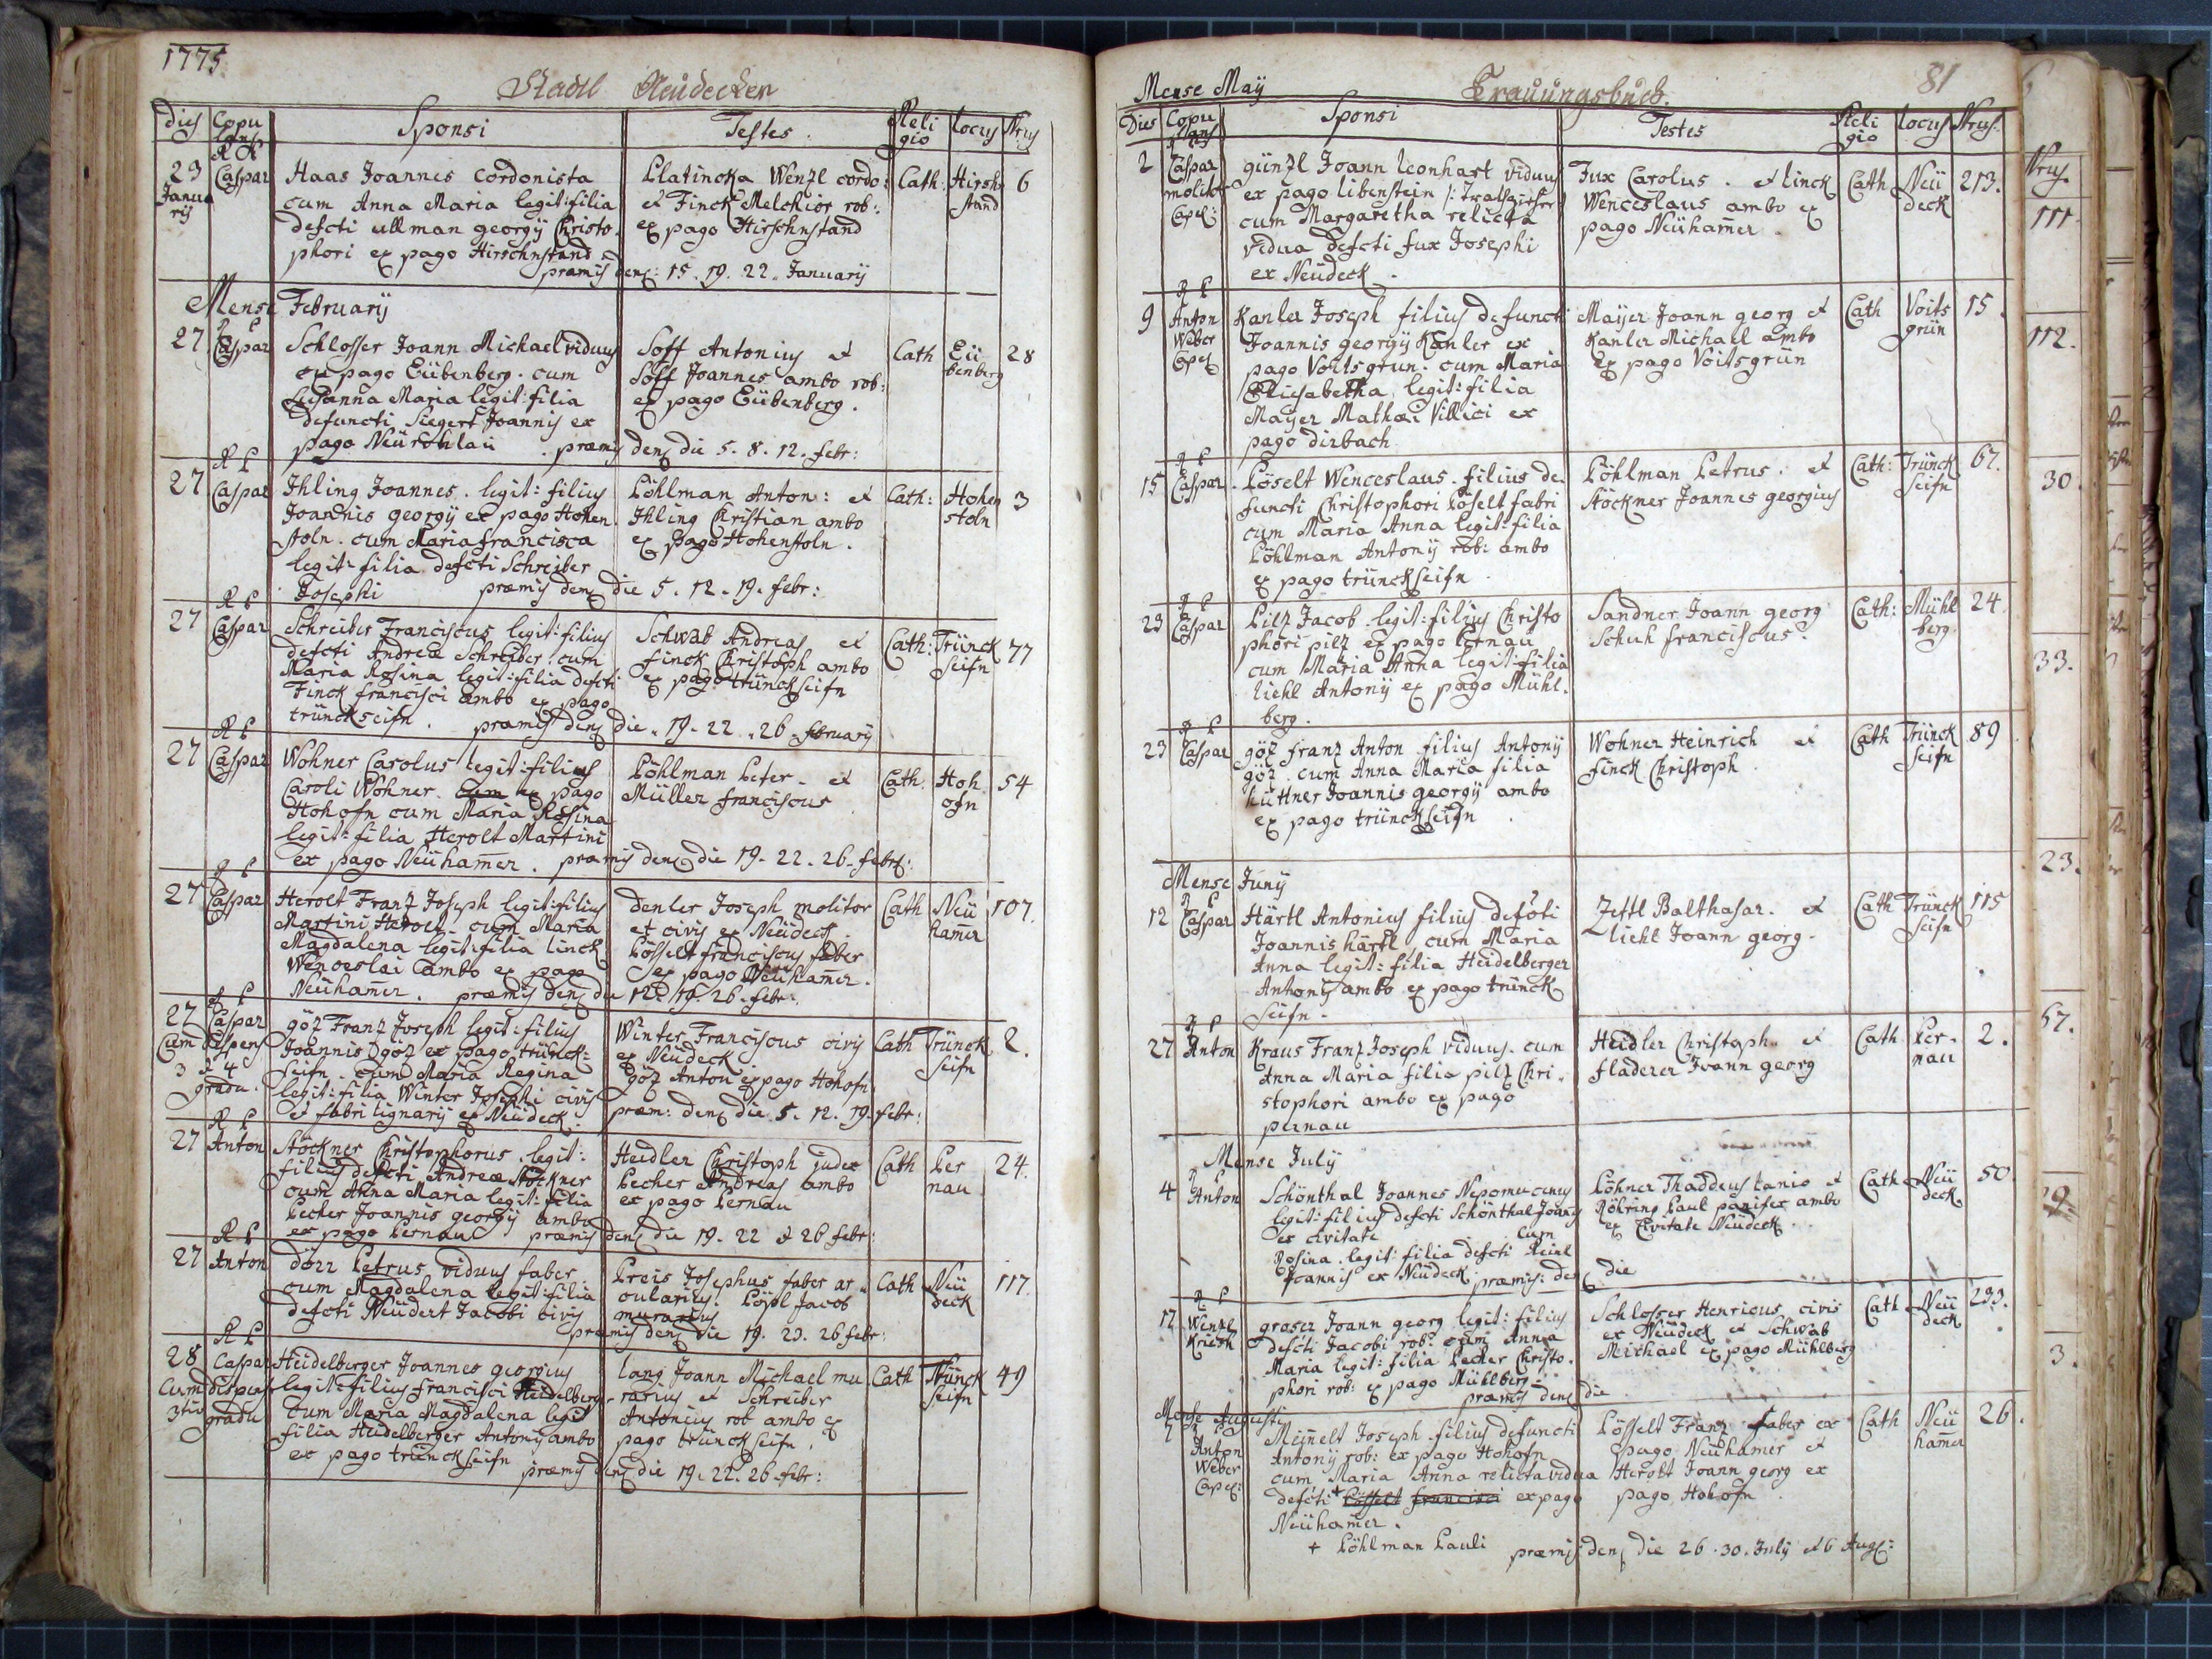 1775.
Stadtl Neudecker
Dies Copulans Sponsi Testes. Religio locus Nrus
23 Januarij
R P Caspar
Haas Joannes cordonista
cum Anna Maria legit: filia
defcti ullman georgij Christo.
phori ex pago Hirschnstand
præmis denq: 15. 19. 22. Januarij
Platincka Wenzl cordo:
et Finck Melchior rob:
ex pago Hirschnstand
Cath: Hirschnstand 6
Mense February
27 R P Caspar
Schlosser Joann Michael viduus
ex pago Eübenberg. cum
Susanna Maria legit: filia
defuncti Siegert Joannis ex
pago Neürohlau . præmis denq die 5. 8. 12. febr:
Soff Antonius et
Soff Joannes ambo rob:
ex pago Eübenberg.
Cath Eübenberg 28
27 R P Caspar
Ihling Joannes. legit: filius
Joannis georgij ex pago Hohen
stoln. cum Maria francisca
legit: filia defcti Schreiber
Josephi præmis denq die 5. 12. 19. febr:
Pöhlman Anton: et
Ihling Christian ambo
ex pago Hohenstoln.
Cath: Hohenstoln 3
27 R P Caspar
Schreiber Franciscus legit: filius
defcti Andreæ Schreiber. cum
Maria Rosina legit: filia defcti
Finck francisci ambo ex pago
trünckseifn. præmis denq die. 19. 22. 26. february
Schwab Andreas et
finck Christoph ambo
ex pago trünckseifn
Cath: Trünckseifn 77
27 R P Caspar
Wohner Carolus legit: filius
Caroli Wohner. cum ex pago
Hohofn cum Maria Rosina
legit: filia Herolt Martini
ex pago Neühamer. præmis denq die 19. 22. 26. febr:
Pöhlman Peter. et
Müller franciscus
Cath. Hohofn 54
27 R P Caspar
Herolt Franz Joseph legit: filius
Martini Herolt. cum Maria
Magdalena legit: filia linck
Wenceslai ambo ex pago
Neühamer. præmis denq die 12. 19. 26. febr:
denler Joseph molitor
et civis ex Neüdeck.
Pösselt franciscus faber
ex pago Neühamer.
Cath Neühamer 107.
27 R P Caspar
Cum Dispens 3 et 4 gradu.
göz Franz Joseph legit: filius
Joannis göz ex pago trünck=
seifn. cum Maria Regina
legit: filia Winter Josephi civis
et fabri lignarij ex Neüdeck.
Winter Franciscus civis
ex Neüdeck
göz Anton ex pago Hohofn
præm: denq die. 5. 12. 19. febr:
Cath Trünckseifn 2.
27 R P Anton
Stöckner Christophorus. legit:
filius defcti Andreæ Stöckner
cum Anna Maria legit: filia
Pecher Joannis georgij ambo
ex pago Pernau præmis denq die 19. 22 et 26 febr:
Heidler Christoph judex
Pecher Andreas ambo
ex pago Pernau
Cath Pernau 24.
27 R P Anton
dörr Petrus viduus faber
cum Magdalena legit: filia
defcti Neüdert Jacobi civis
præmis denq die 19. 23. 26 febr:
Preis Josephus faber ar.
cularius. Pöpl Jacob
murarius
Cath Neüdeck 117.
28 R P Caspar
Cum dispens 3tii gradu
Heidelberger Joannes georgius
legit: filius francisci Heidelberg
cum Maria Magdalena legit
filia Heidelberger Antonij ambo
ex pago trünckseifn præmis denq die 19. 22. 26 febr:
lang Joann Michael mu
rarius et Schreiber
Antonius rob ambo ex
pago trünckseifn.
Cath Trünckseifn 49
Mense Maij Trauungsbuch. 81
Dies Copulans Sponsi Testes Religio locus Nrus
2 R P Caspar
Capel:
günzl Joann leonhart viduus
ex pago libenstein
cum Margaretha relicta
vidua defcti fux Josephi
ex Neüdeck.
Fux Carolus. et linck
Wenceslaus ambo ex
pago Neühamer.
Cath Neüdeck 213.
9 R P Anton Weber Capel
Kanler Joseph filius defuncti
Joannis georgij Kanler ex
pago Voitsgrün. cum Maria
Elisabetha legit: filia
Mayer Mathæi Villici ex
pago dirbach
Mayer Joann georg et
Kanler Michael ambo
ex pago Voitsgrün
Cath Voitsgrün 15.
15 R P Caspar
Pöselt Wenceslaus. filius de
functi Christophori Pöselt fabri
cum Maria Anna legit: filia
Pöhlman Antonij rob: ambo
ex pago trünckseifn.
Pöhlman Petrus. et
Stöckner Joannes georgius
Cath: Trünckseifn 67.
23 R P Caspar
Pilz Jacob. legit: filius Christo
phori pilz ex pago Pernau
cum Maria Anna legit: filia
liehl Antonij ex pago Mühl.
berg.
Sandner Joann georg
Schuh franciscus.
Cath: Mühlberg. 24
23 R P Caspar
göz franz Anton filius Antonij
göz. cum Anna Maria filia
hüttner Joannis georgij ambo
ex pago trünckseifn
Wohner Heinrich et
finck Christoph
Cath Trünckseifn 89
Mense Junij
12 R P Caspar
Härtl Antonius filius defcti
Joannis härtl cum Maria
Anna legit: filia Heidelberger
Antonij ambo ex pago trünck
seifn.
Zettl Balthasar. et
liehl Joann georg.
Cath Trünckseifn 115
27 R P Anton
Kraus Franz Joseph viduus. cum
Anna Maria filia pilz Chri.
stophori ambo ex pago
pernau
Heidler Christoph. et
fladerer Joann georg
Cath Pernau 2.
Mense July
4 R P Anton
Schönthal Joannes Nepomucenus
legit: filius defcti Schönthal Joannis
ex civitate cum
Rosina. legit: filia defcti Reinl
Joannis ex Neüdeck. præmis: denq die
Pöhner Thaddeus lanio et
Röhring Paul panifex ambo
ex Civitate Neüdeck.
Cath Neüdeck 50.
17 R P Wenzl
groser Joann georg legit: filius
defcti Jacobi rob: cum Anna
Maria legit: filia Pecher Christo.
phori rob: ex pago Mühlberg.
præmis denq die
Schlosser Henricus civis
ex Neüdeck et Schwab
Michael ex pago Mühlberg
Cath Neüdeck 233.
Mense Augusti
7 R P Anton Weber Capel:
Meinelt Joseph filius defuncti
Antonij rob: ex pago Hohofn
cum Maria Anna relicta vidua
defcti + Pösselt francisci ex pago
Neühamer.
+ Pöhlman Pauli præmis denq die 26. 30. July et 6 Aug:
Pösselt Franz faber ex
pago Neühamer et
Herolt Joann georg ex
pago Hohofn
Cath Neühamer 26.
Nrus.
111.
112.
30.
33.
23.
57.
3.